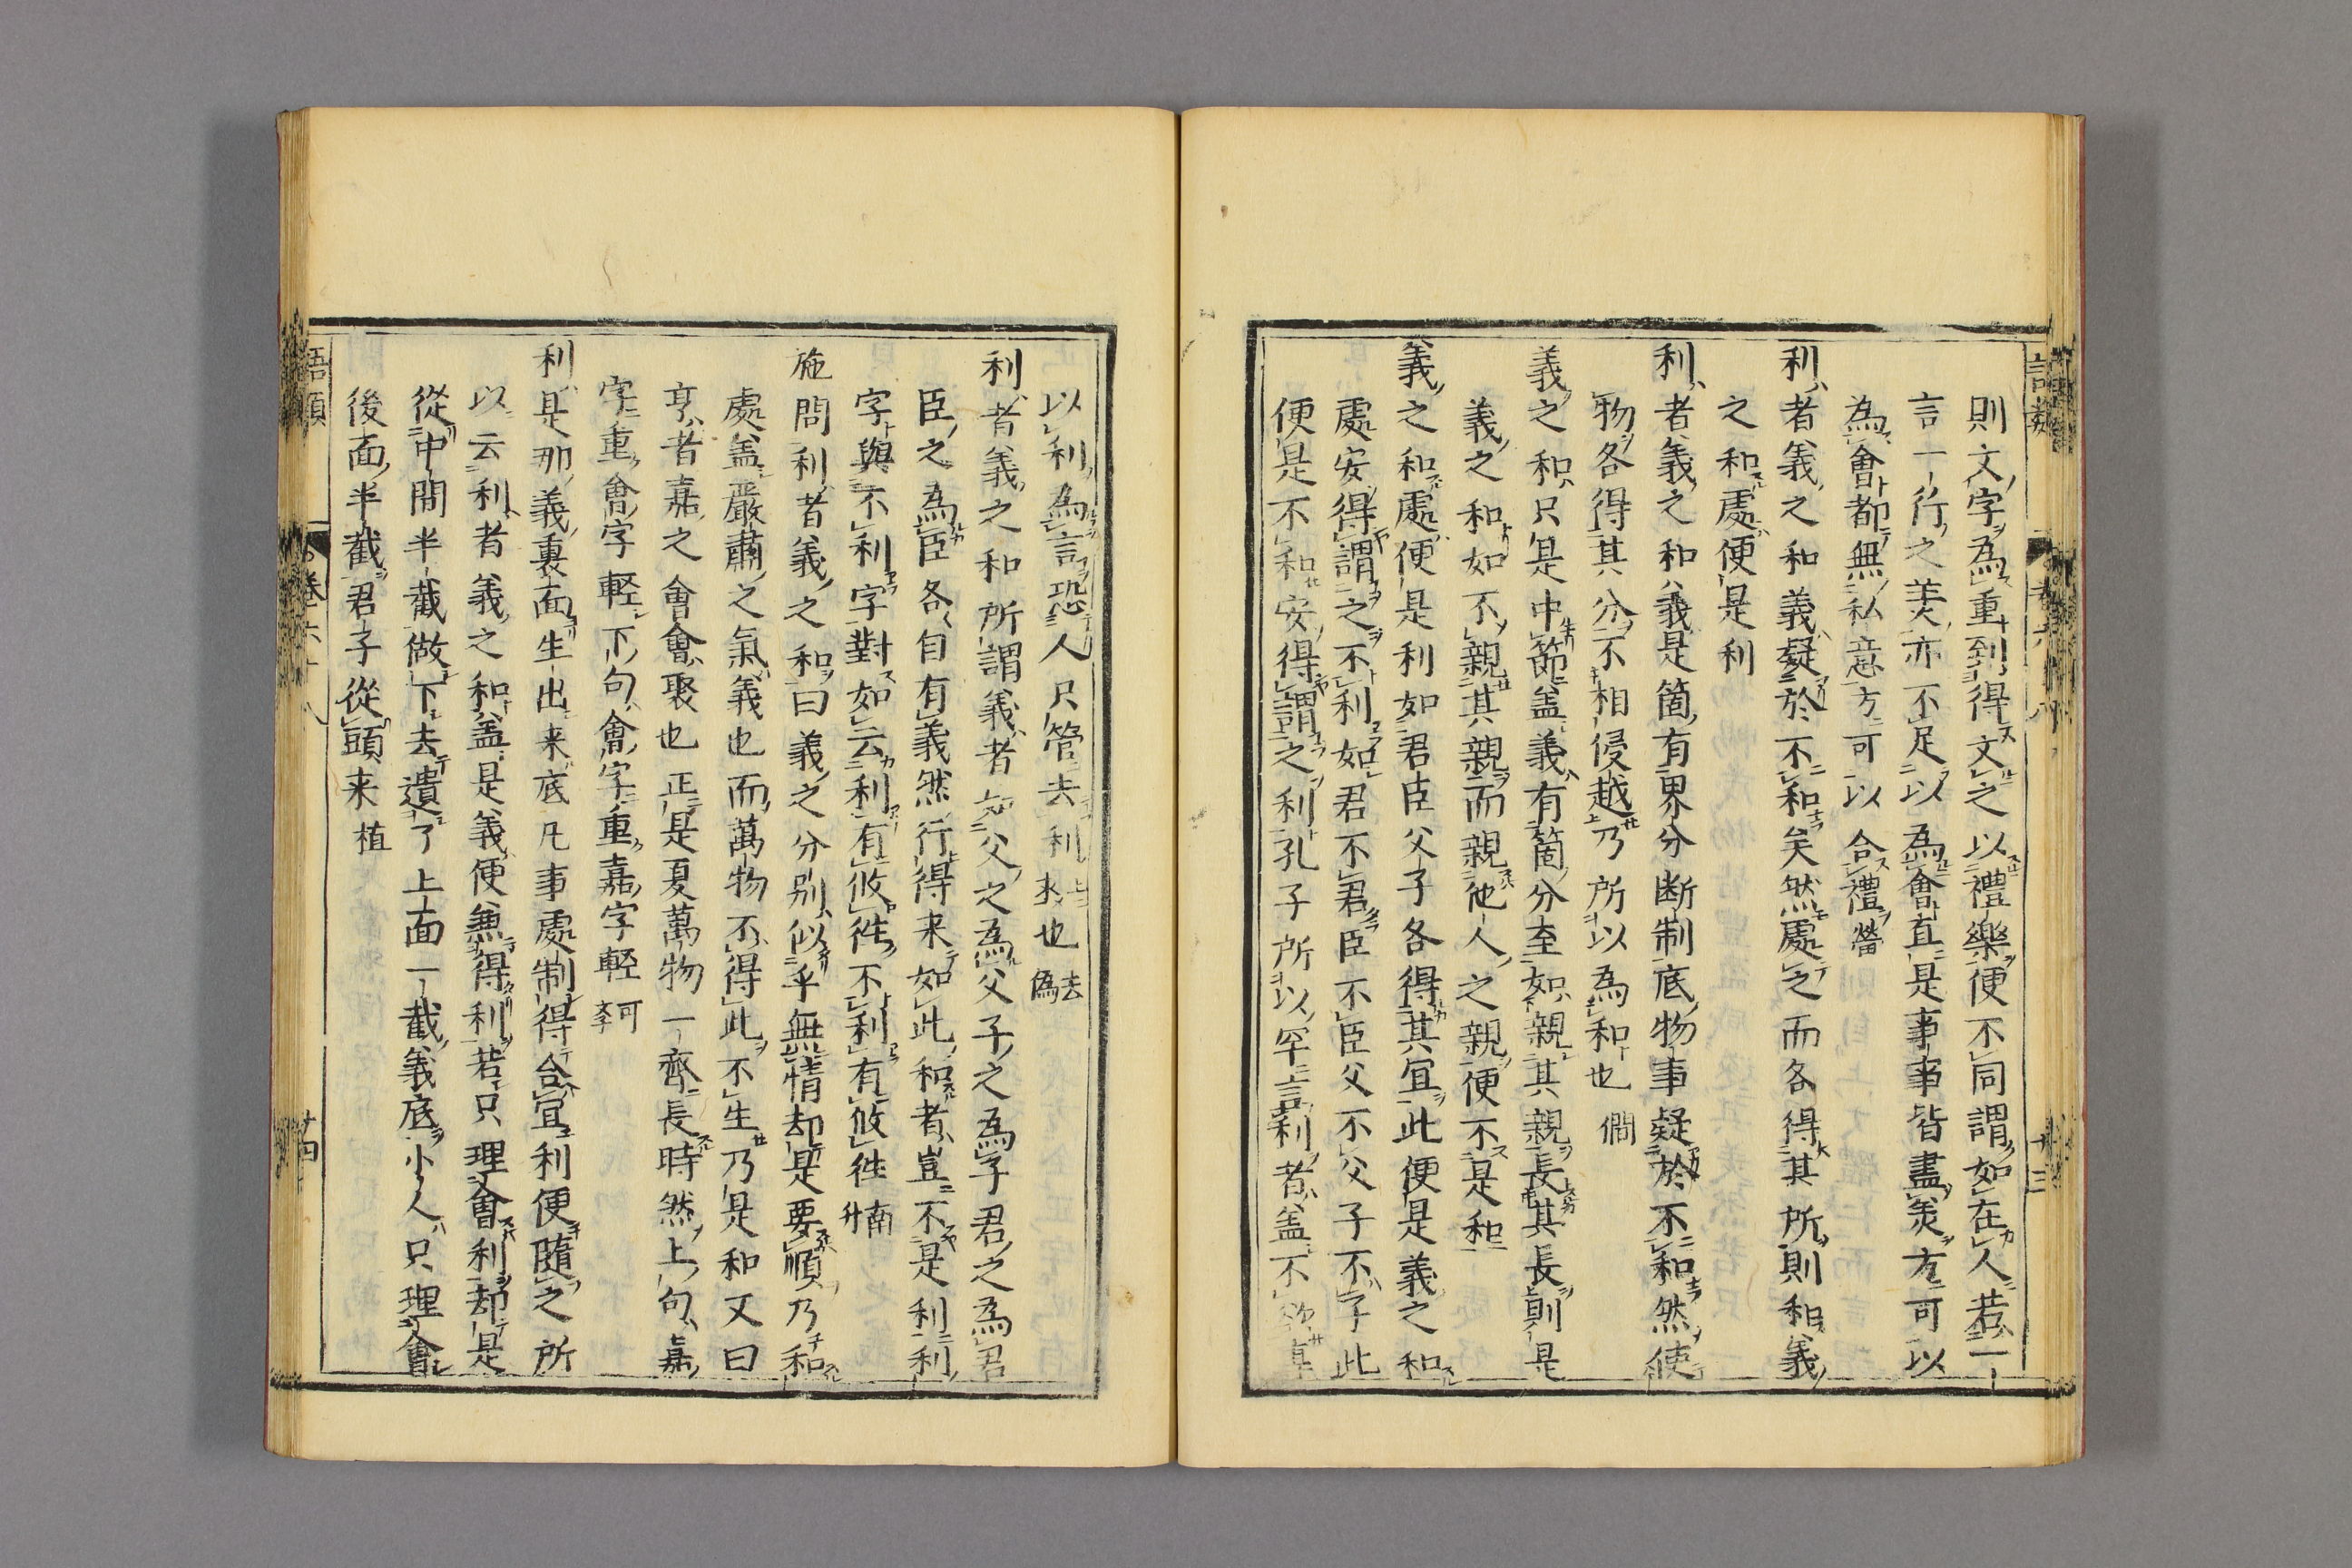 則文字為重到得文之以禮樂便不同謂如在人若一
言一行之羙亦不足以為會直是事事皆盡羙方可以
為會都無私意方可以合禮㽦
利者義之和義疑於不和矣然處之而各得其所則和義
之和處便是利
利者義之和義是箇有界分断制底物事疑於不和然使
物各得其分不相侵越乃所以為和也僩
義之和只是中節盖義有箇分至如親其親長其長則是
義之和如不親其親而親他人之親便不是和
義之和處便是利如君臣父子各得其宜此便是義之和
處安得謂之不利如君不君臣不臣父不父子不子此
便是不和安得謂之利孔子所以罕言利者盖不欲專
以利為言恐人只管去利上求也去偽
利者義之和所謂義者如父之為父子之為子君之為君
臣之為臣各自有義然行得来如此和者豈不是利利
字與不利字對如云利有攸徃不利有攸徃南升
施問利者義之和曰義之分别似乎無情却是要順乃和
處盖嚴肅之氣義也而萬物不得此不生乃是和又曰
亨者嘉之會會聚也正是夏萬物一齊長時然上句嘉
字重會字輕下句會字重嘉字輕可李
利是那義裏面生出来底凡事處制得合宜利便隨之所
以云利者義之和盖是義便兼得利若只理會利却是
從中間半截做下去遺了上面一截義底小人只理會
後面半截君子從頭来植
語類
卷六十八
十四